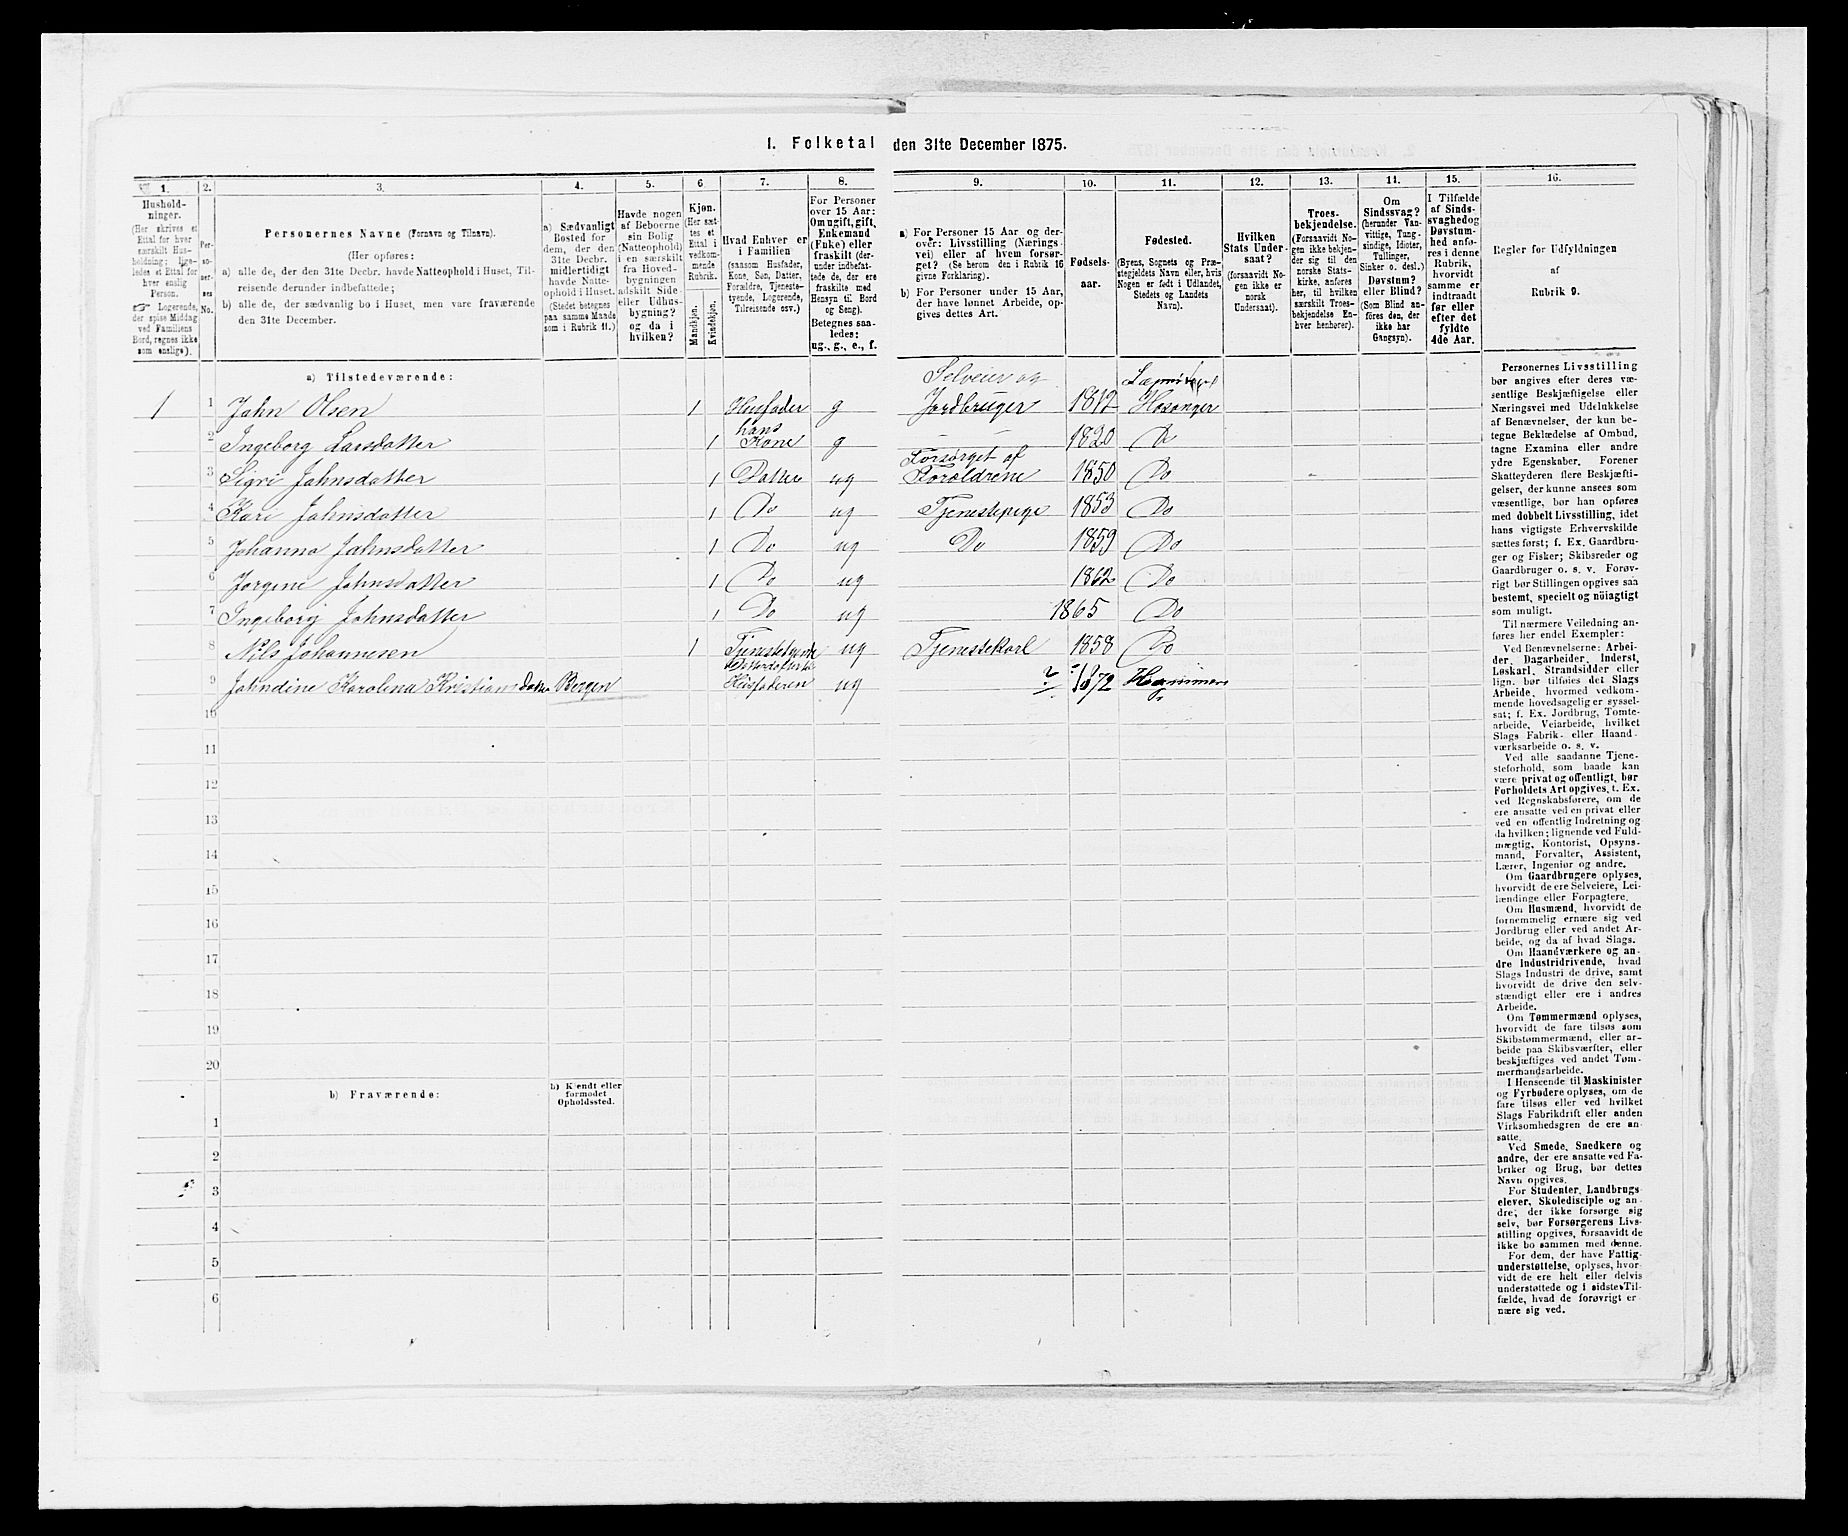 1. Folketal den 31te December 1875.
1.
2.
3.
4.
5.
6
7.
8.
9.
10.
11.
12.
13.
14.
15.
16.
Hushold-
ninger.
(Her skrives et
Ettal for hver
særskilt Hus-
holdning; lige-
ledes et Ettal for
hver enslig
Person.
☞ Logerende,
der spise Middag
ved Familiens
Bord, regnes ikke
som enslige).
Per-
so-
ner-
nes
No.
Personernes Navne (Fornavn og Tilnavn).
(Her opføres:
a) alle de, der den 31te Decbr. havde Natteophold i Huset, Til-
reisende derunder indbefattede;
b) alle de, der sædvanlig bo i Huset, men vare fraværende
den 31te December.
a) Sædvanligt
Bosted for
dem, der den
31te Decbr.
midlertidigt
havde Natte-
ophold i Huset.
(Stedet betegnes
paa samme Maade
som i Rubrik 11.)
Havde nogen
af Beboerne
sin Bolig
(Natteophold)
i en særskilt
fra Hoved-
bygningen
adskilt Side-
eller Udhus-
bygning?
og da i
hvilken?
Kjøn.
(Her sæt-
tes et
Ettal i
vedkom-
mende
Rubrik.
Mandkjøn.
Kvindekjøn.
Hvad Enhver er
i Familien
(saasom Husfader,
Kone, Søn, Datter,
Forældre, Tjeneste-
tyende, Logerende,
Tilreisende osv.)
For Personer
over 15 Aar:
Om ugift, gift,
Enkemand
(Enke) eller
fraskilt (der-
under indbefat-
tede de, der ere
fraskilte med
Hensyn til Bord
og Seng).
Betegnes saa-
ledes:
ug., g., e., f.
a) For Personer 15 Aar og der-
over: Livsstilling (Nærings-
vei) eller af hvem forsør-
get? (Se herom den i Rubrik 16
givne Forklaring).
b) For Personer under 15 Aar,
der have lønnet Arbeide, op-
gives dettes Art.
Fødsels-
aar.
Fødested.
(Byens, Sognets og Præ-
stegjeldets Navn eller, hvis
Nogen er født i Udlandet,
Stedets og Landets
Navn).
Hvilken
Stats Under-
saat?
(forsaavidt No-
gen ikke er
norsk
Undersaat).
Troes-
bekjendelse.
(Forsaavidt No-
gen ikke bekjen-
der sig til den
norske Stats-
kirke, anføres
her, til hvilken
særskilt Troes-
bekjendelse En-
hver henhører).
Om
Sindssvag?
(herunder Van-
vittige, Tung-
sindige, Idioter,
Tullinger,
Sinker o. desl.)
Døvstum?
eller Blind?
(Som Blind an-
føres den, der
ikke har
Gangsyn).
I Tilfælde
af Sinds-
svaghed og
Døvstum-
hed anfø-
res i denne
Rubrik,
hvorvidt
samme er
indtraadt
før eller
efter det
fyldte
4de Aar.
Regler for Udfyldningen
af
Rubrik 9.
a) Tilstedeværende:
1 1 Jahn Olsen 1 Husfader g Selveier og Jordbruger 1812 Hosanger
2 Ingeborg Larsdatter 1 hans Kone g 1820 Do
3 Sigri Jahnsdatter 1 Datter ug Forsørget af Forældrene 1850 Do
4 Kari Jahnsdatter 1 Do ug Tjenestepige 1853 Do
5 Johanna Jahnsdatter 1 Do ug Do 1859 Do
6 Jorgine Jahnsdatter 1 Do ug 1862 Do
7 Ingeborg Jahnsdatter 1 Do ug 1865 Do
8 Nils Johannesen 1 Tjenestetyende ug Tjenestekarl 1858 Do
9 Jahndine Karolina Kristiansdatter Bergen Husfaderen ug ? 1872
10
11
12
13
14
15
16
17
18
19
20
b) Fraværende:
b) Kjendt eller
formodet
Opholdssted.
1
2
3
4
5
6
Personernes Livsstilling
bør angives efter deres væ-
sentlige Beskjæftigelse eller
Næringsvei med Udelukkelse
af Benævnelser, der kun be-
tegne Beklædelse af Ombud,
tagne Examina eller andre
ydre Egenskaber. Forener
Skatteyderen flere Beskjæfti-
gelser, der kunne ansees som
væsentlige, bør han opføres
med dobbelt Livsstilling, idet
hans vigtigste Erhvervskilde
sættes først; f. Ex. Gaardbru-
ger og Fisker; Skibsreder og
Gaardbruger o. s. v. Forøv-
rigt bør Stillingen opgives saa
bestemt, specielt og nöiagtigt
som muligt.
Til nærmere Veiledning an-
føres her endel Exempler:
Ved Benævnelserne: Arbei-
der, Dagarbeider, Inderst,
Løskarl, Strandsidder eller
lign. bør tilføies det Slags
Arbeide, hvormed vedkom-
mende hovedsagelig er syssel-
sat; f. Ex. Jordbrug, Tomte-
arbeide, Veiarbeide, hvilket
Slags Fabrik- eller Haand-
værksarbeide o. s. v.
Ved alle saadanne Tjene-
steforhold, som baade kan
være privat og offentligt, bør
Forholdets Art opgives, t. Ex.
ved Regnskabsførere, om de
ere ansatte ved en privat eller
ved en offentlig Indretning og
da hvilken; lignende ved Fuld-
mægtig, Kontorist, Opsyns-
mand, Forvalter, Assistent,
Lærer, Ingeniør og andre.
Om Gaardbrugere oplyses,
hvorvidt de ere Selveiere, Lei-
lændinge eller Forpagtere.
Om Husmænd, hvorvidt de
fornemmelig ernære sig ved
Jordbrug eller ved andet Ar-
beide, og da af hvad Slags.
Om Haandværkere og an-
dre Industridrivende, hvad
Slags Industri de drive, samt
hvorvidt de drive den selv-
stændigt eller ere i andres
Arbeide.
Om Tømmermænd oplyses,
hvorvidt de fare tilsøs som
Skibstømmermænd, eller ar-
beide paa Skibsværfter, eller
beskjæftiges ved andet Tøm-
mermandsarbeide.
I Henseende til Maskinister
og Fyrbødere oplyses, om de
fare tilsøs eller ved hvilket
Slags Fabrikdrift eller anden
Virksomhedsgren de ere an-
satte.
Ved Smede, Snedkere og
andre, der ere ansatte ved Fa-
briker og Brug, bør dettes
Navn opgives.
For Studenter, Landbrugs-
elever, Skoledisciple og an-
dre, der ikke forsørge sig
selv, bør Forsørgerens Livs-
stilling opgives, forsaavidt de
ikke bo sammen med denne.
For dem, der have Fattig-
understøttelse, oplyses, hvor-
vidt de ere helt eller delvis
understøttede og i sidste Til-
fælde, hvad de forøvrigt er
nære sig ved.